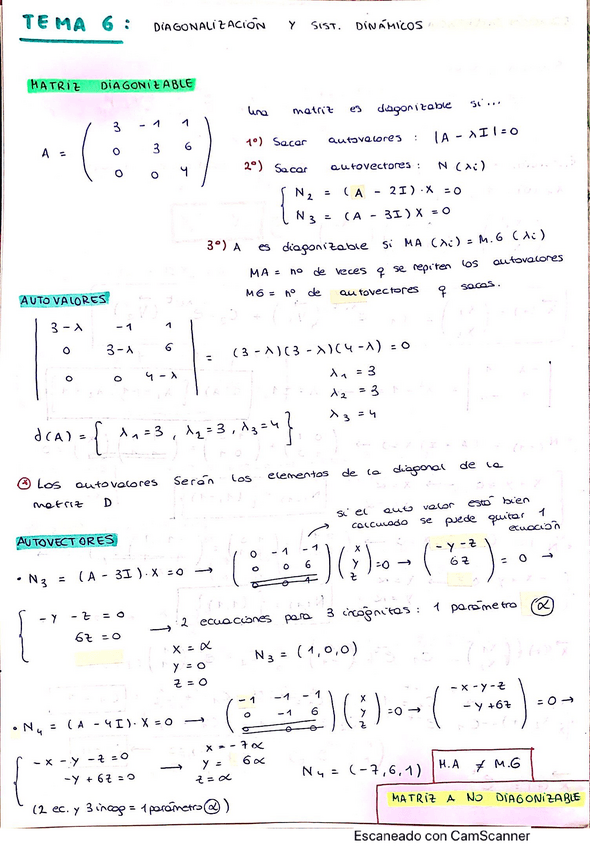 TEMA 6: DIAGONALIZACIÓN Y SIST. DINÁMICOS
MATRIZ DIAGONIZABLE
A = ( 3 -1 1
0 3 6
0 0 4 )
Una matriz es diagonizable si...
1º) Sacar autovalores: |A - λI| = 0
2º) Sacar autovectores: N (λi)
{ N2 = (A - 2I)·X = 0
N3 = (A - 3I) X = 0
3º) A es diagonizable si MA (λi) = M.G (λi)
MA = nº de veces q se repiten los autovalores
MG = nº de autovectores q sacas.
AUTOVALORES
| 3-λ -1 1
0 3-λ 6
0 0 4-λ | = (3-λ)(3-λ)(4-λ) = 0
λ1 = 3
λ2 = 3
λ3 = 4
d(A) = { λ1=3, λ2=3, λ3=4 }
* Los autovalores serán los elementos de la diagonal de la
matriz D
si el auto valor está bien
calculado se puede quitar 1
ecuación
AUTOVECTORES
• N3 = (A - 3I)·X = 0 → ( 0 -1 -1
0 0 6
0 0 1 ) ( x
y
z ) = 0 → ( -y-z
6z ) = 0 →
{ -y - z = 0
6z = 0 → 2 ecuaciones para 3 incógnitas: 1 parámetro α
x = α
y = 0
z = 0
N3 = (1,0,0)
• N4 = (A - 4I)·X = 0 → ( -1 -1 -1
0 -1 6
0 0 0 ) ( x
y
z ) = 0 → ( -x-y-z
-y+6z ) = 0 →
{ -x - y - z = 0
-y + 6z = 0 → x = -7α
y = 6α
z = α
N4 = (-7,6,1)
M.A ≠ M.G
(2 ec. y 3 incog = 1 parámetro α)
MATRIZ A NO DIAGONIZABLE
Escaneado con CamScanner